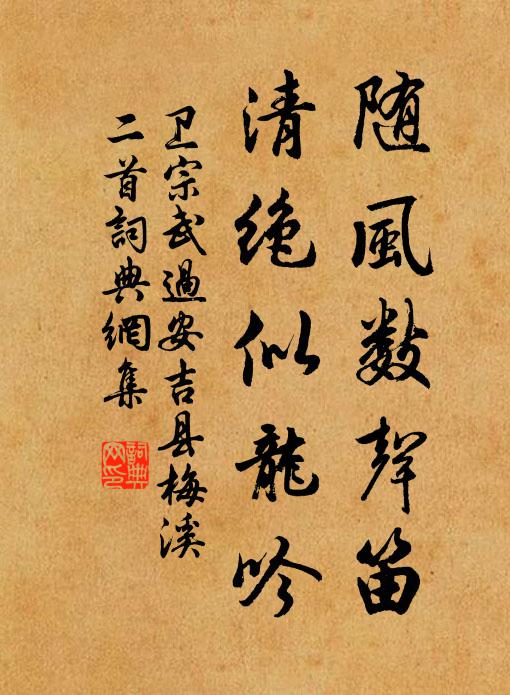 随風数聲笛
清绝似龍吟
卫宗武過安吉县梅溪
二首詞典網集
詞典
网印